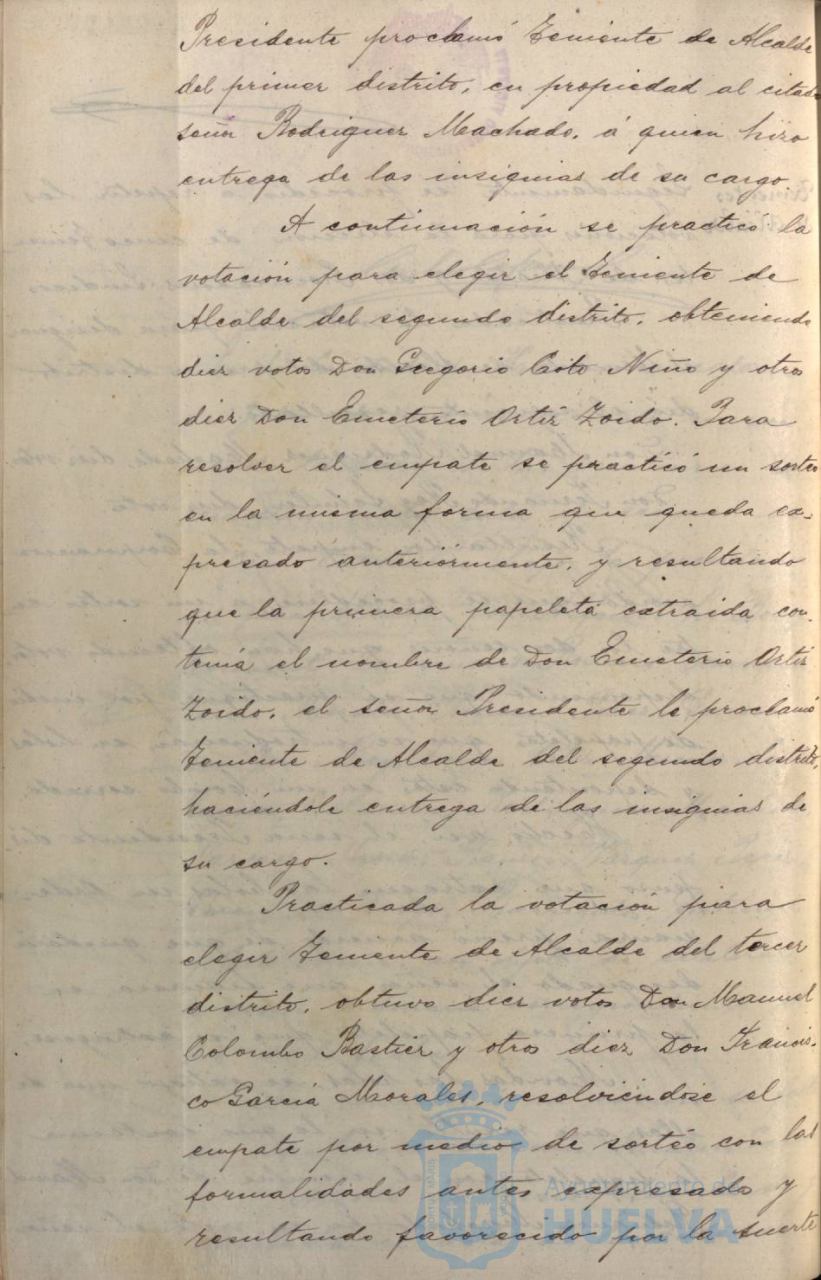 Presidente proclamó Teniente de Alcalde
del primer distrito, en propiedad al citado
señor Rodriguez Machado, á quien hizo
entrega de las insignias de su cargo.
A continuación se practicó la
votación para elegir el Teniente de
Alcalde del segundo distrito, obteniendo
diez votos Don Gregorio Coto Niño y otros
diez Don Emeterio Ortíz Zoido. Para
resolver el empate se practicó un sorteo
en la misma forma que queda ex-
presado anteriormente, y resultando
que la primera papeleta extraida con-
tenía el nombre de Don Emeterio Ortíz
Zoido, el señor Presidente le proclamó
Teniente de Alcalde del segundo distrito,
haciéndole entrega de las insignias de
su cargo.
Practicada la votación para
elegir Teniente de Alcalde del tercer
distrito, obtuvo diez votos Don Manuel
Colombo Bastier y otros diez Don Francis-
co García Morales, resolviéndose el
empate por medio de sorteo con las
formalidades antes expresado y
resultando favorecido por la suerte
Ayuntamiento de
HUELVA